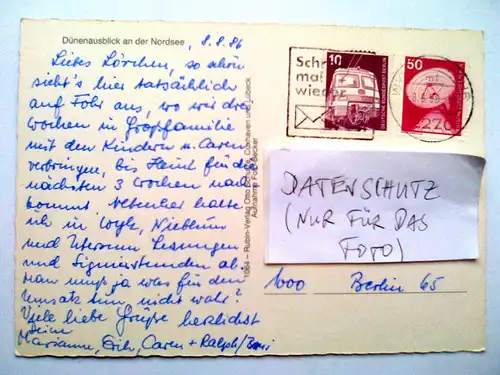 Dünenausblick an der Nordsee
8.8.86
Liebes Lörchen, so schön
sieht's hier tatsächlich
auf Föhr aus, wo wir drei
Wochen in Großfamilie
mit den Kindern u. Caren
verbringen, bis Heinz für die
nächsten 3 Wochen nach-
kommt. Nebenher halte
ich in Wyk, Nieblum
und Utersum Lesungen
und Signierstunden ab.
Man muß ja was für den
Umsatz tun, nicht wahr?
Viele liebe Grüße herzlichst
Deine
Marianne, Erik, Caren + Ralph/
1064 – Rubin-Verlag Otto Schulze, Cuxhaven und Lübeck
Aufnahme Foto-Becker
mal
wieder
10
DEUTSCHE BUNDESPOST BERLIN
50
2270
DATENSCHUTZ
(NUR FÜR DAS
FOTO)
1000 Berlin 65